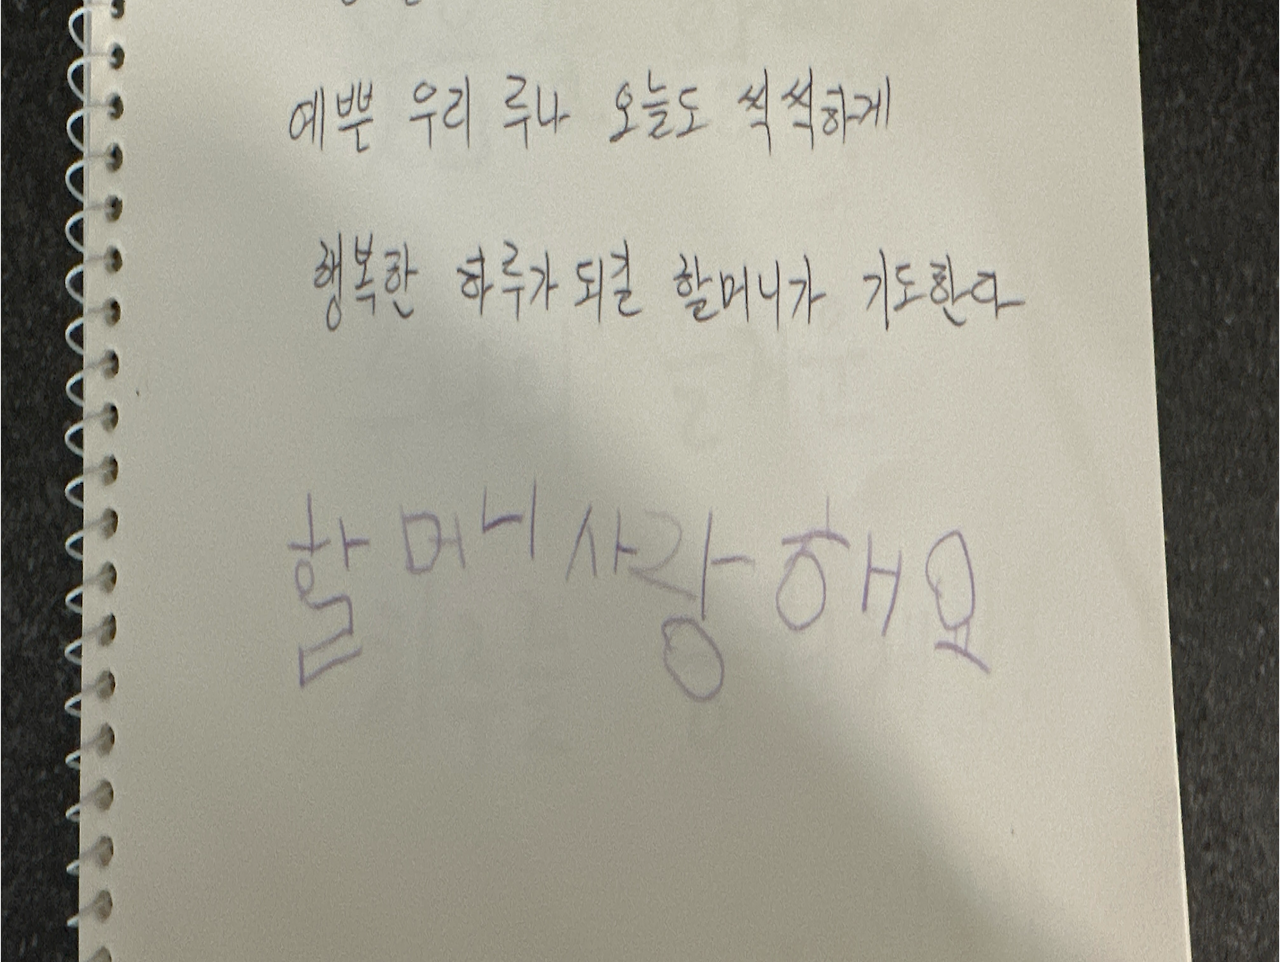 예쁜 우리 루나 오늘도 씩씩하게
행복한 하루가 되길 할머니가 기도한다
할머니 사랑해요